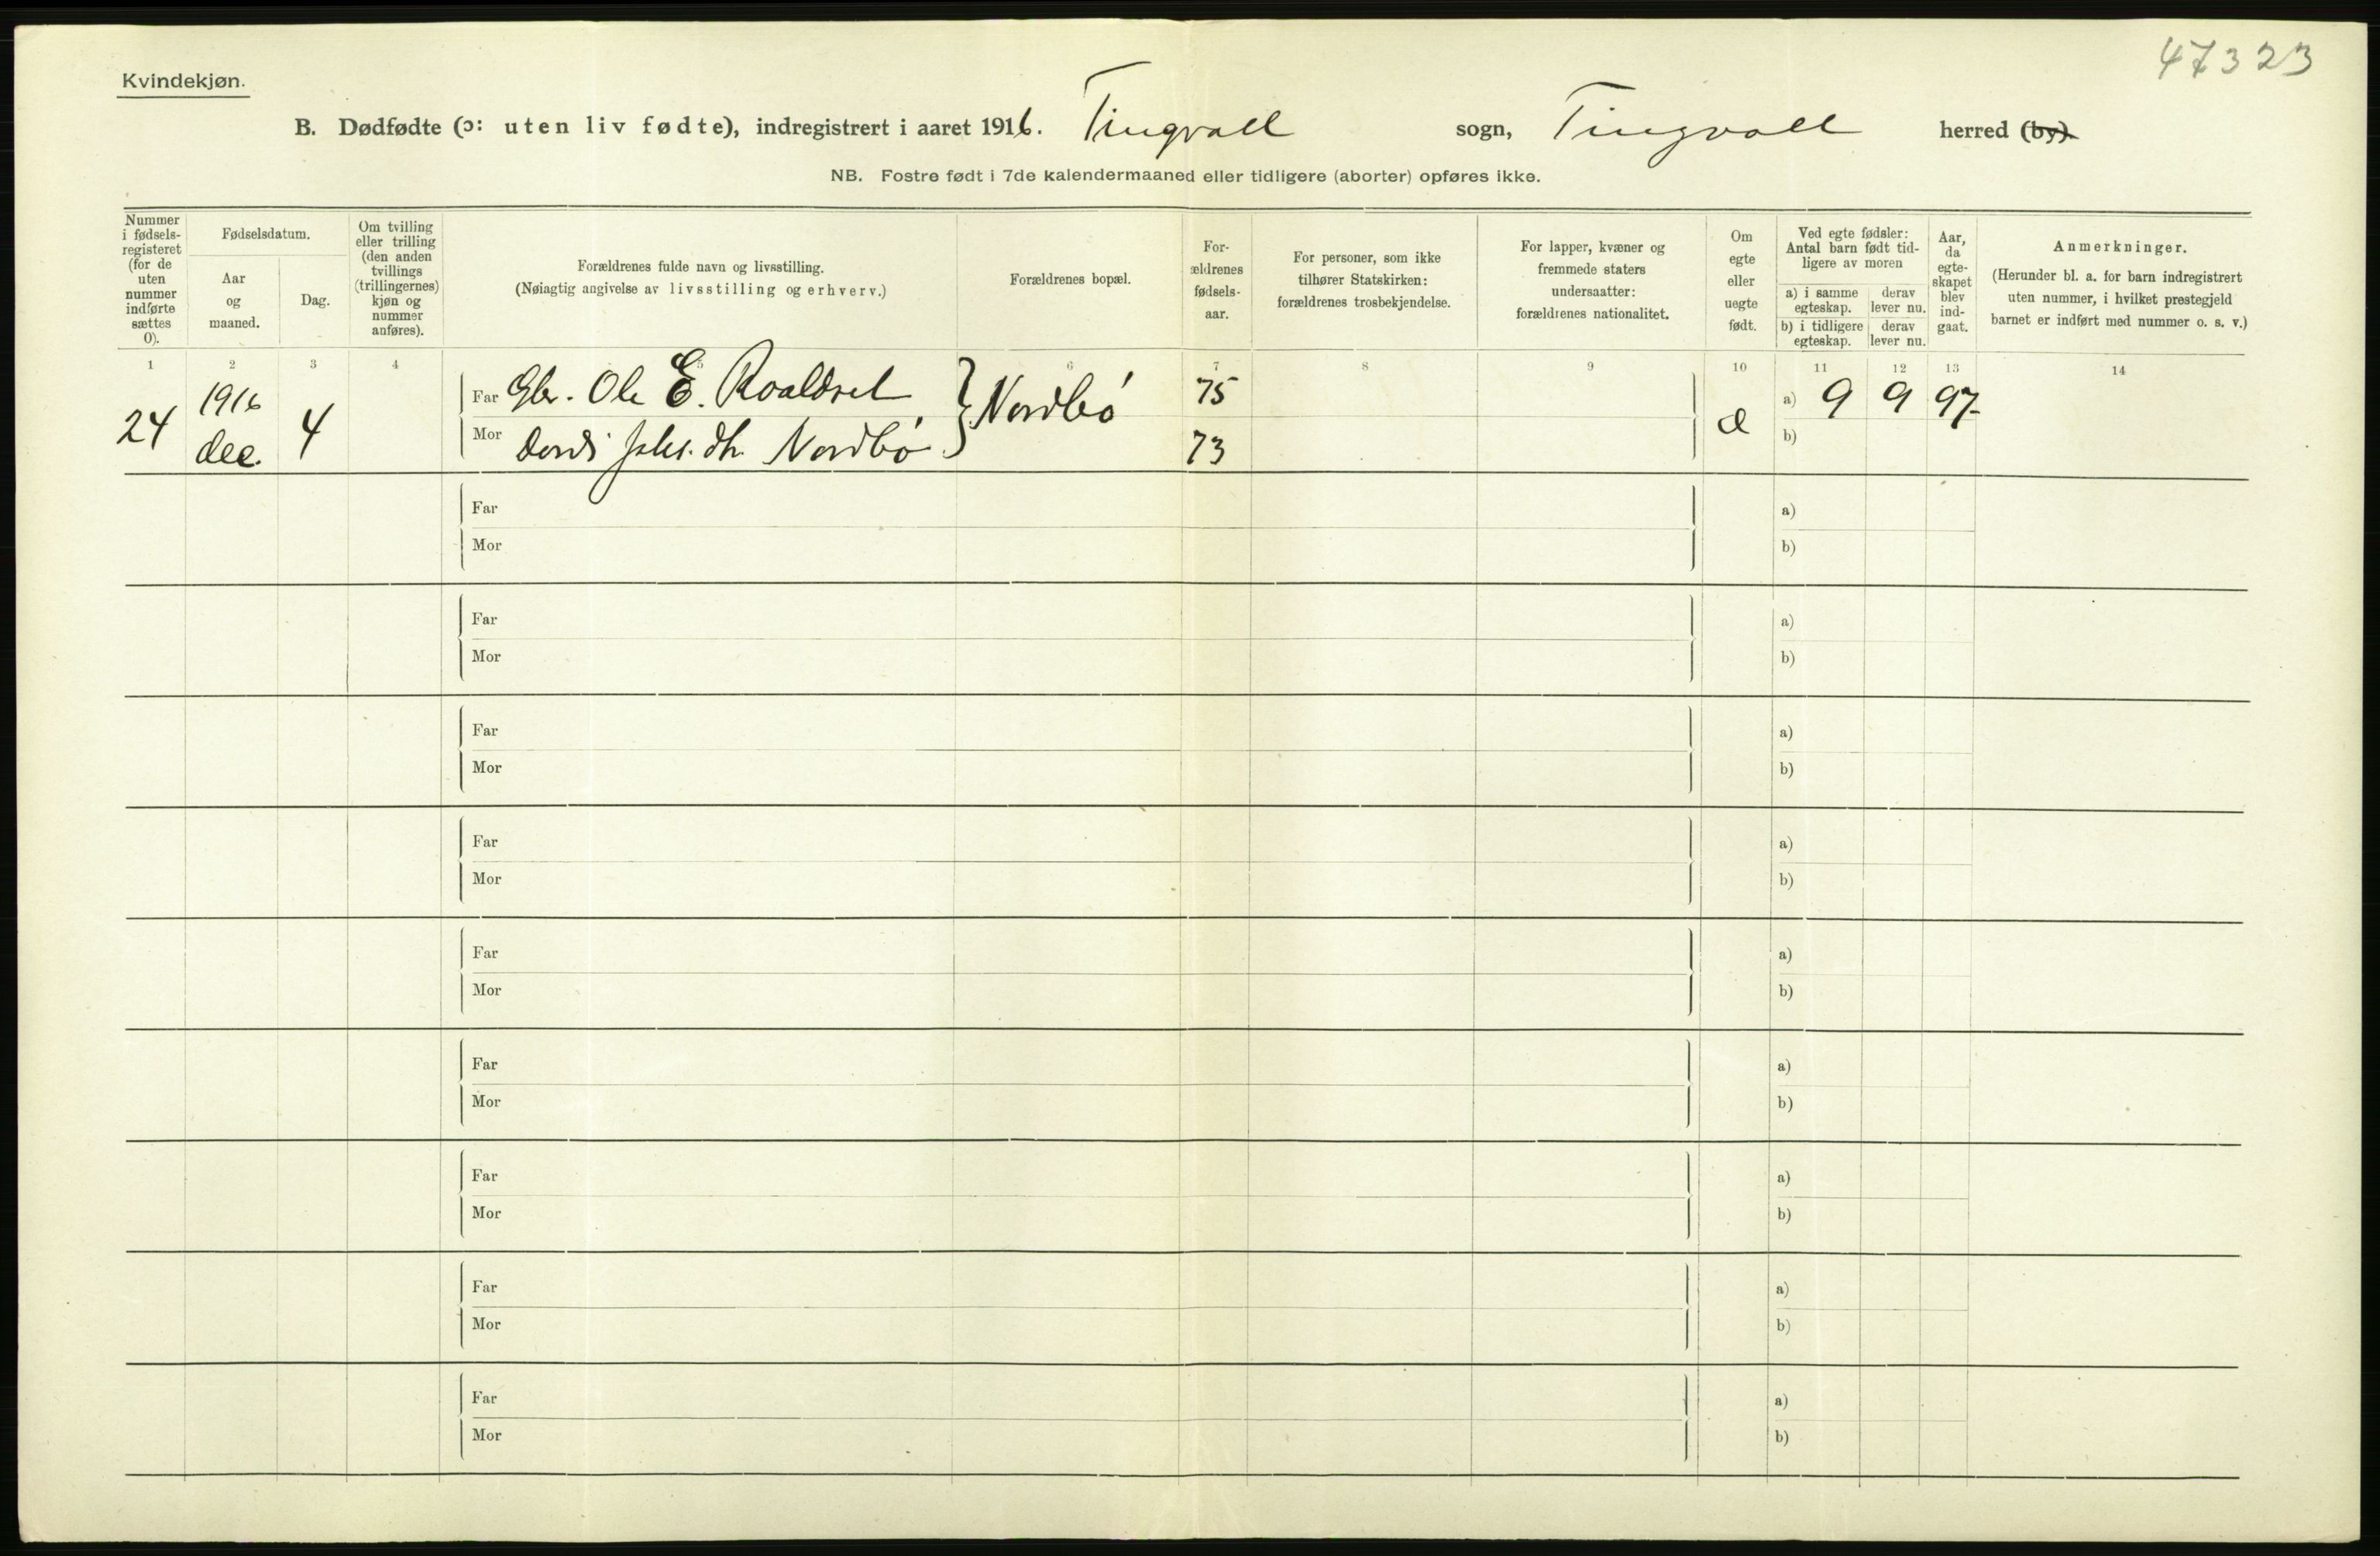 47323
Kvindekjøn.
B. Dødfødte (ɔ: uten liv fødte), indregistrert i aaret 1916. Tingvoll sogn, Tingvoll herred (by).
NB. Fostre født i 7de kalendermaaned eller tidligere (aborter) opføres ikke.
Nummer
i fødsels-
registeret
(for de
uten
nummer
indførte
sættes
0).
Fødselsdatum.
Aar
og
maaned.
Dag.
Om tvilling
eller trilling
(den anden
tvillings
(trillingernes)
kjøn og
nummer
anføres).
Forældrenes fulde navn og livsstilling.
(Nøiagtig angivelse av livsstilling og erhverv.)
Forældrenes bopæl.
For-
ældrenes
fødsels-
aar.
For personer, som ikke
tilhører Statskirken:
forældrenes trosbekjendelse.
For lapper, kvæner og
fremmede staters
undersaatter:
forældrenes nationalitet.
Om
egte
eller
uegte
født.
Ved egte fødsler:
Antal barn født tid-
ligere av moren
a) i samme
egteskap.
derav
lever nu.
b) i tidligere
egteskap.
derav
lever nu.
Aar,
da
egte-
skapet
blev
ind-
gaat.
Anmerkninger.
(Herunder bl. a. for barn indregistrert
uten nummer, i hvilket prestegjeld
barnet er indført med nummer o. s. v.)
1 2 3 4 5 6 7 8 9 10 11 12 13 14
24 1916 dec. 4
Far Gbr. Ole E. Roaldset Nordbó 75 a) 9 9 97
Mor dh. Nordbó 73 b)
Far a)
Mor b)
Far a)
Mor b)
Far a)
Mor b)
Far a)
Mor b)
Far a)
Mor b)
Far a)
Mor b)
Far a)
Mor b)
Far a)
Mor b)
Far a)
Mor b)